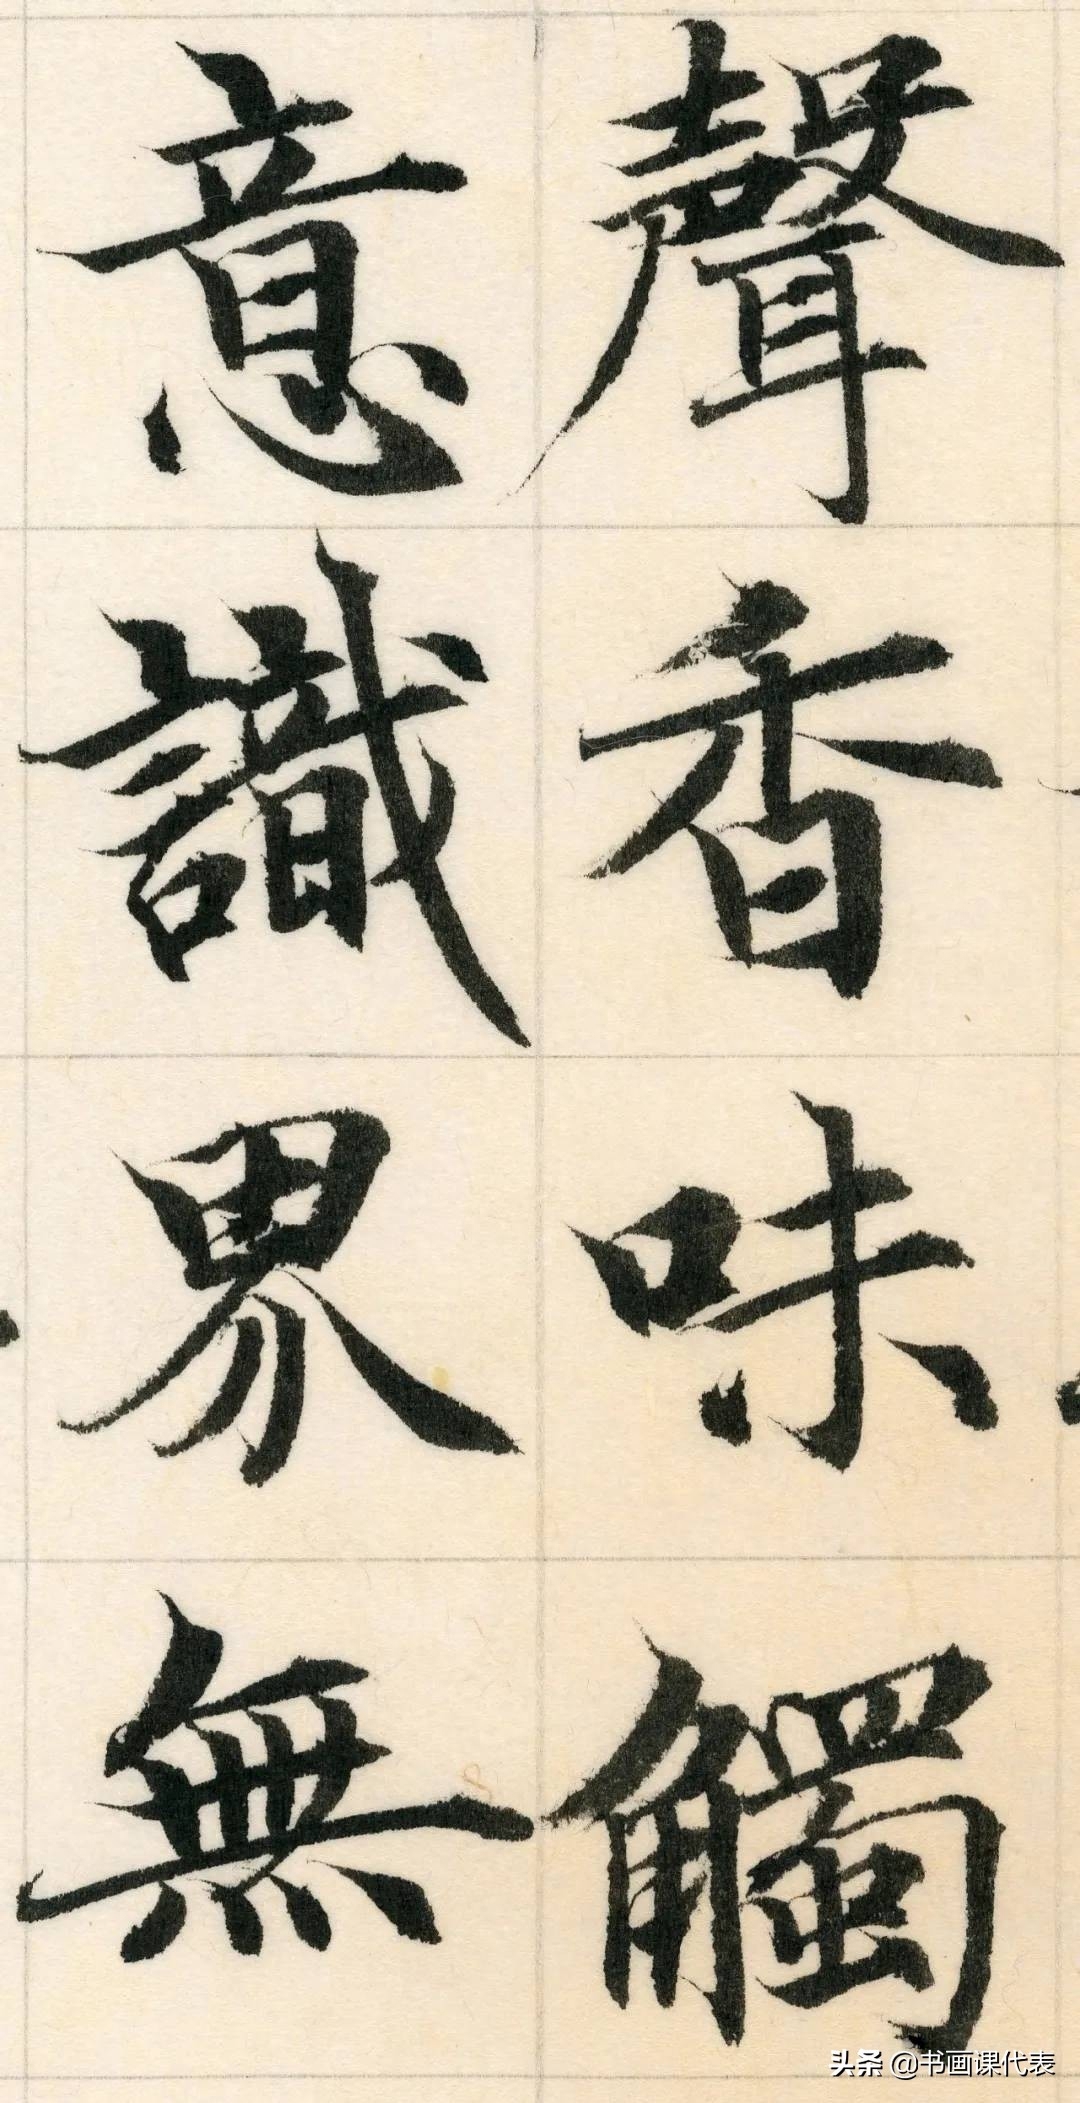 聲香味觸
意識界無
头条 @书画课代表